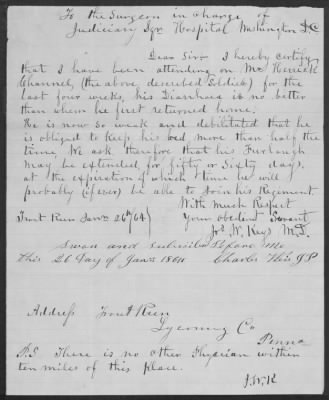 To the Surgeon in charge of
Judiciary Sqr Hospital Washington D.C
Dear Sir I hereby certify
that I have been attending on Mr
Channel, (the above described Soldier) for the
last four weeks, his Diarrhaea is no better
than when he first returned home;
He is now so weak and debilitated that he
is obliged to keep his bed more than half the
time, We ask therefore that his Furlough
may be extended, for fifty or Sixty days,
at the expiration of which time he will
probably (if ever) be able to Join his Regiment
With much Respect
Your obedient Servant
Trout Run Janr 26th/64
W. Keys M.D.
Sworn and subscribed before me
this 26 Day of Janr 1864 Charles J P
Address Trout Run
Lycoming Co
Penna
P.S. There is no other Physician within
ten miles of this place.
J.W.K